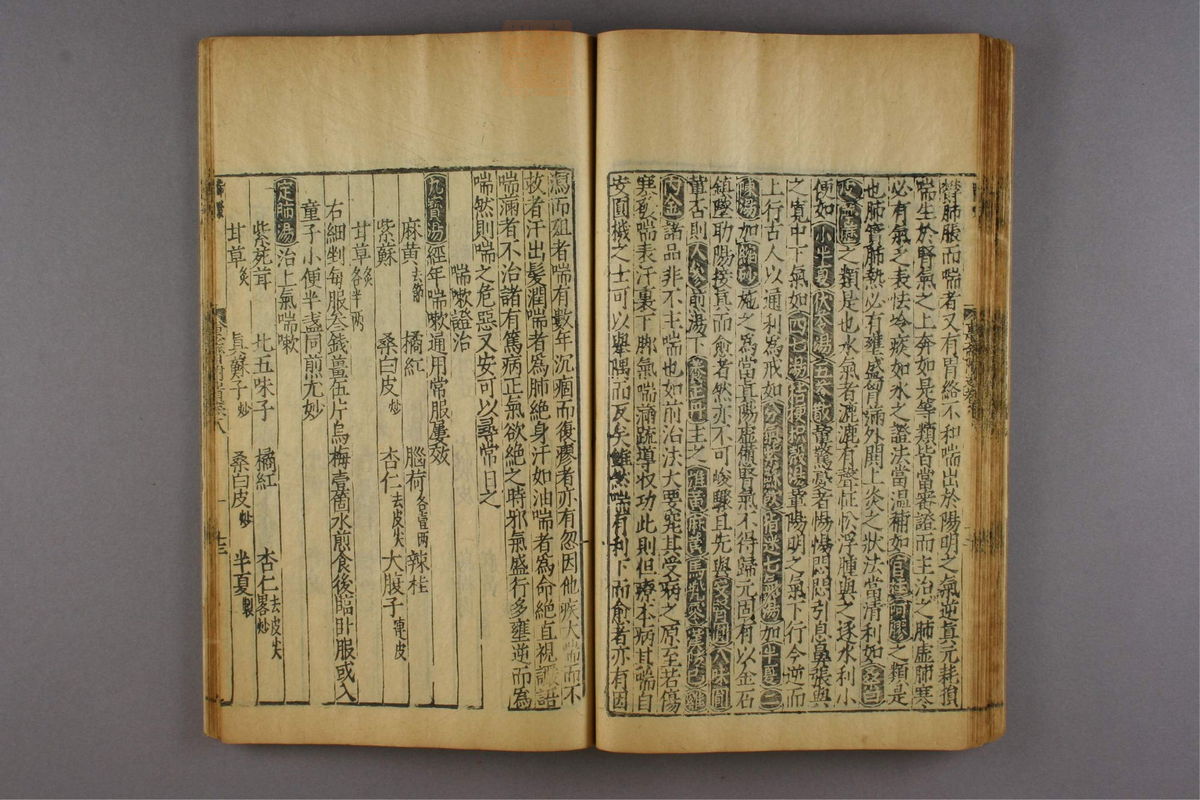 欝肺脹而喘者又有胃絡不和喘出於陽明之氣逆真元耗損
喘生於腎氣之上奔如是等類皆當審證而主治之肺虛肺寒
必有氣乏表怯冷痰如水之證法當溫補如官桂阿膠之類是
也肺實肺熱必有壅盛胷滿外閧上炎之狀法當清利如
之類是也水氣者漉漉有聲怔忪浮腫與之逐水利小
便如小半夏茯苓湯五苓散軰驚憂者惕惕悶悶引息鼻張與
之寬中下氣如四七湯桔梗枳殼湯軰陽明之氣下行今逆而
上行古人以通利為戒如分氣紫蘇飲指迷七氣湯加半夏二
陳湯加縮砂施之為當真陽虛憊腎氣不得歸元固有以金石
鎮墜助陽接真而愈者然亦不可峻驟且先與安腎圓八味圓
軰否則人參煎湯下養正丹主之雄黃麻黃馬兜苓 雞
內金諸品非不主喘也如前治法大要究其受病之原至若傷
寒發喘表汗裏下脚氣喘滿疏導收功此則但療本病其喘自
安圓機之士可以舉隅而反矣雖然喘有利下而愈者亦有因
瀉而殂者喘有數年沉痼而復瘳者亦有忽因他疾大喘而不
救者汗出髮潤喘者為肺絕身汗如油喘者為命絕直視譫語
喘滿者不治諸有篤病正氣欲絕之時邪氣盛行多壅逆而為
喘然則喘之危惡又安可以尋常目之
喘嗽證治
九寳湯經年喘嗽通用常服屢效
麻黃去節 橘紅 腦荷各壹兩 辣桂
紫蘇 桑白皮炒 杏仁去皮尖 大腹子連皮
甘草炙各半兩
右細剉每服叁錢薑伍片烏梅壹箇水煎食後臨卧服或入
童子小便半盞同煎尤妙
定肺湯治上氣喘嗽
紫菀茸 北五味子 橘紅 杏仁去皮尖畧炒
甘草炙 真蘇子炒 桑白皮炒 半夏製